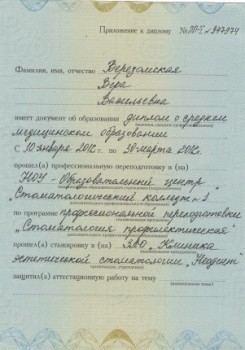 Приложение к диплому № ПП-I № 947974
Фамилия, имя, отчество Верезомская
Вера
Васильевна
имеет документ об образовании диплом о среднем
медицинском образовании
с 10 января 2012 г. по 30 марта 2012 г.
прошел(а) профессиональную переподготовку в (на)
НОУ - Образовательный центр
"Стоматологический колледж № 1
по программе профессиональной переподготовки
"Стоматология профилактическая"
прошел(а) стажировку в (на) ЗАО "Клиника
эстетической стоматологии
защитил(а) аттестационную работу на тему